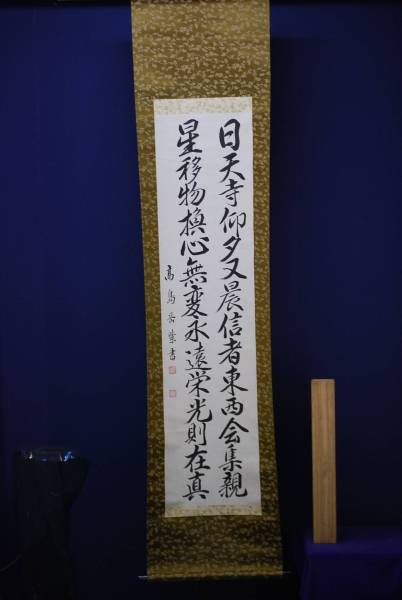 日天寺仰夕又晨信者東西会集親
星移物換心無変永遠栄光則在真
高島岳紫書